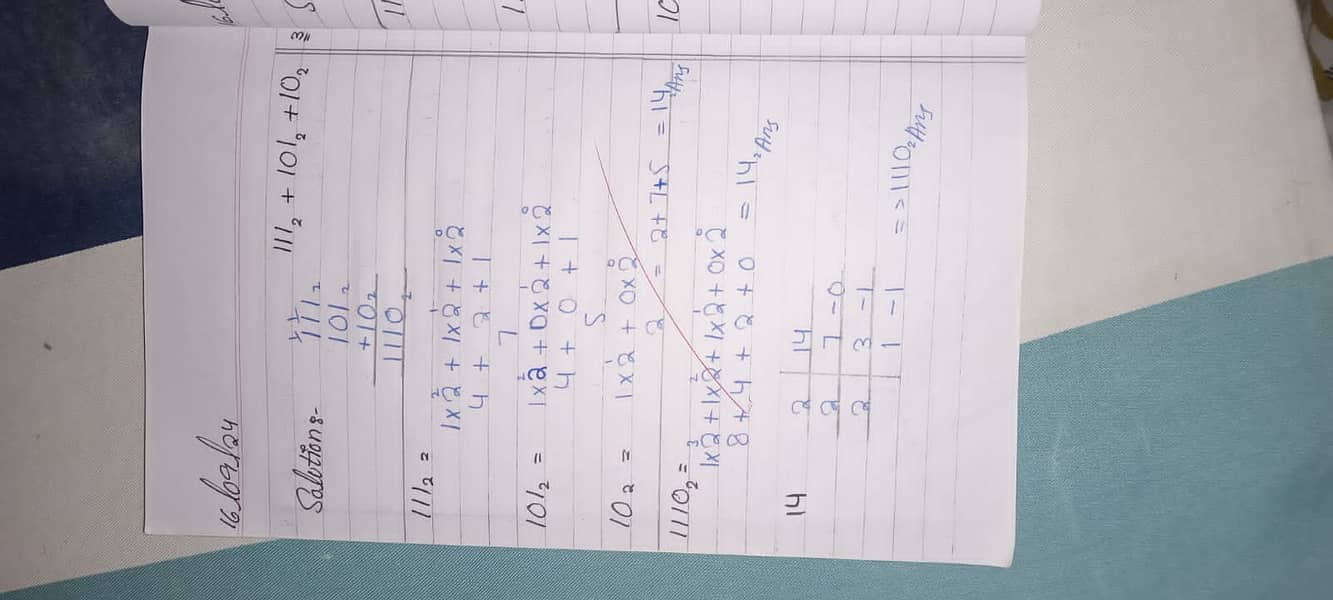 16/09/24
111₂ + 101₂ + 10₂
Solution:-
1 1
111₂
101₂
+10₂
1110₂
111₂ =
1x2² + 1x2¹ + 1x2⁰
4 + 2 + 1
7
101₂ = 1x2² + 0x2¹ + 1x2⁰
4 + 0 + 1
5
10₂ = 1x2¹ + 0x2⁰
2 = 2+7+5 = 14₂ Ans
1110₂ =
1x2³+1x2²+1x2¹+0x2⁰
8+4+2+0 = 14₂ Ans
14
2 14
2 7 -0
2 3 -1
1 -1 => 1110₂ Ans